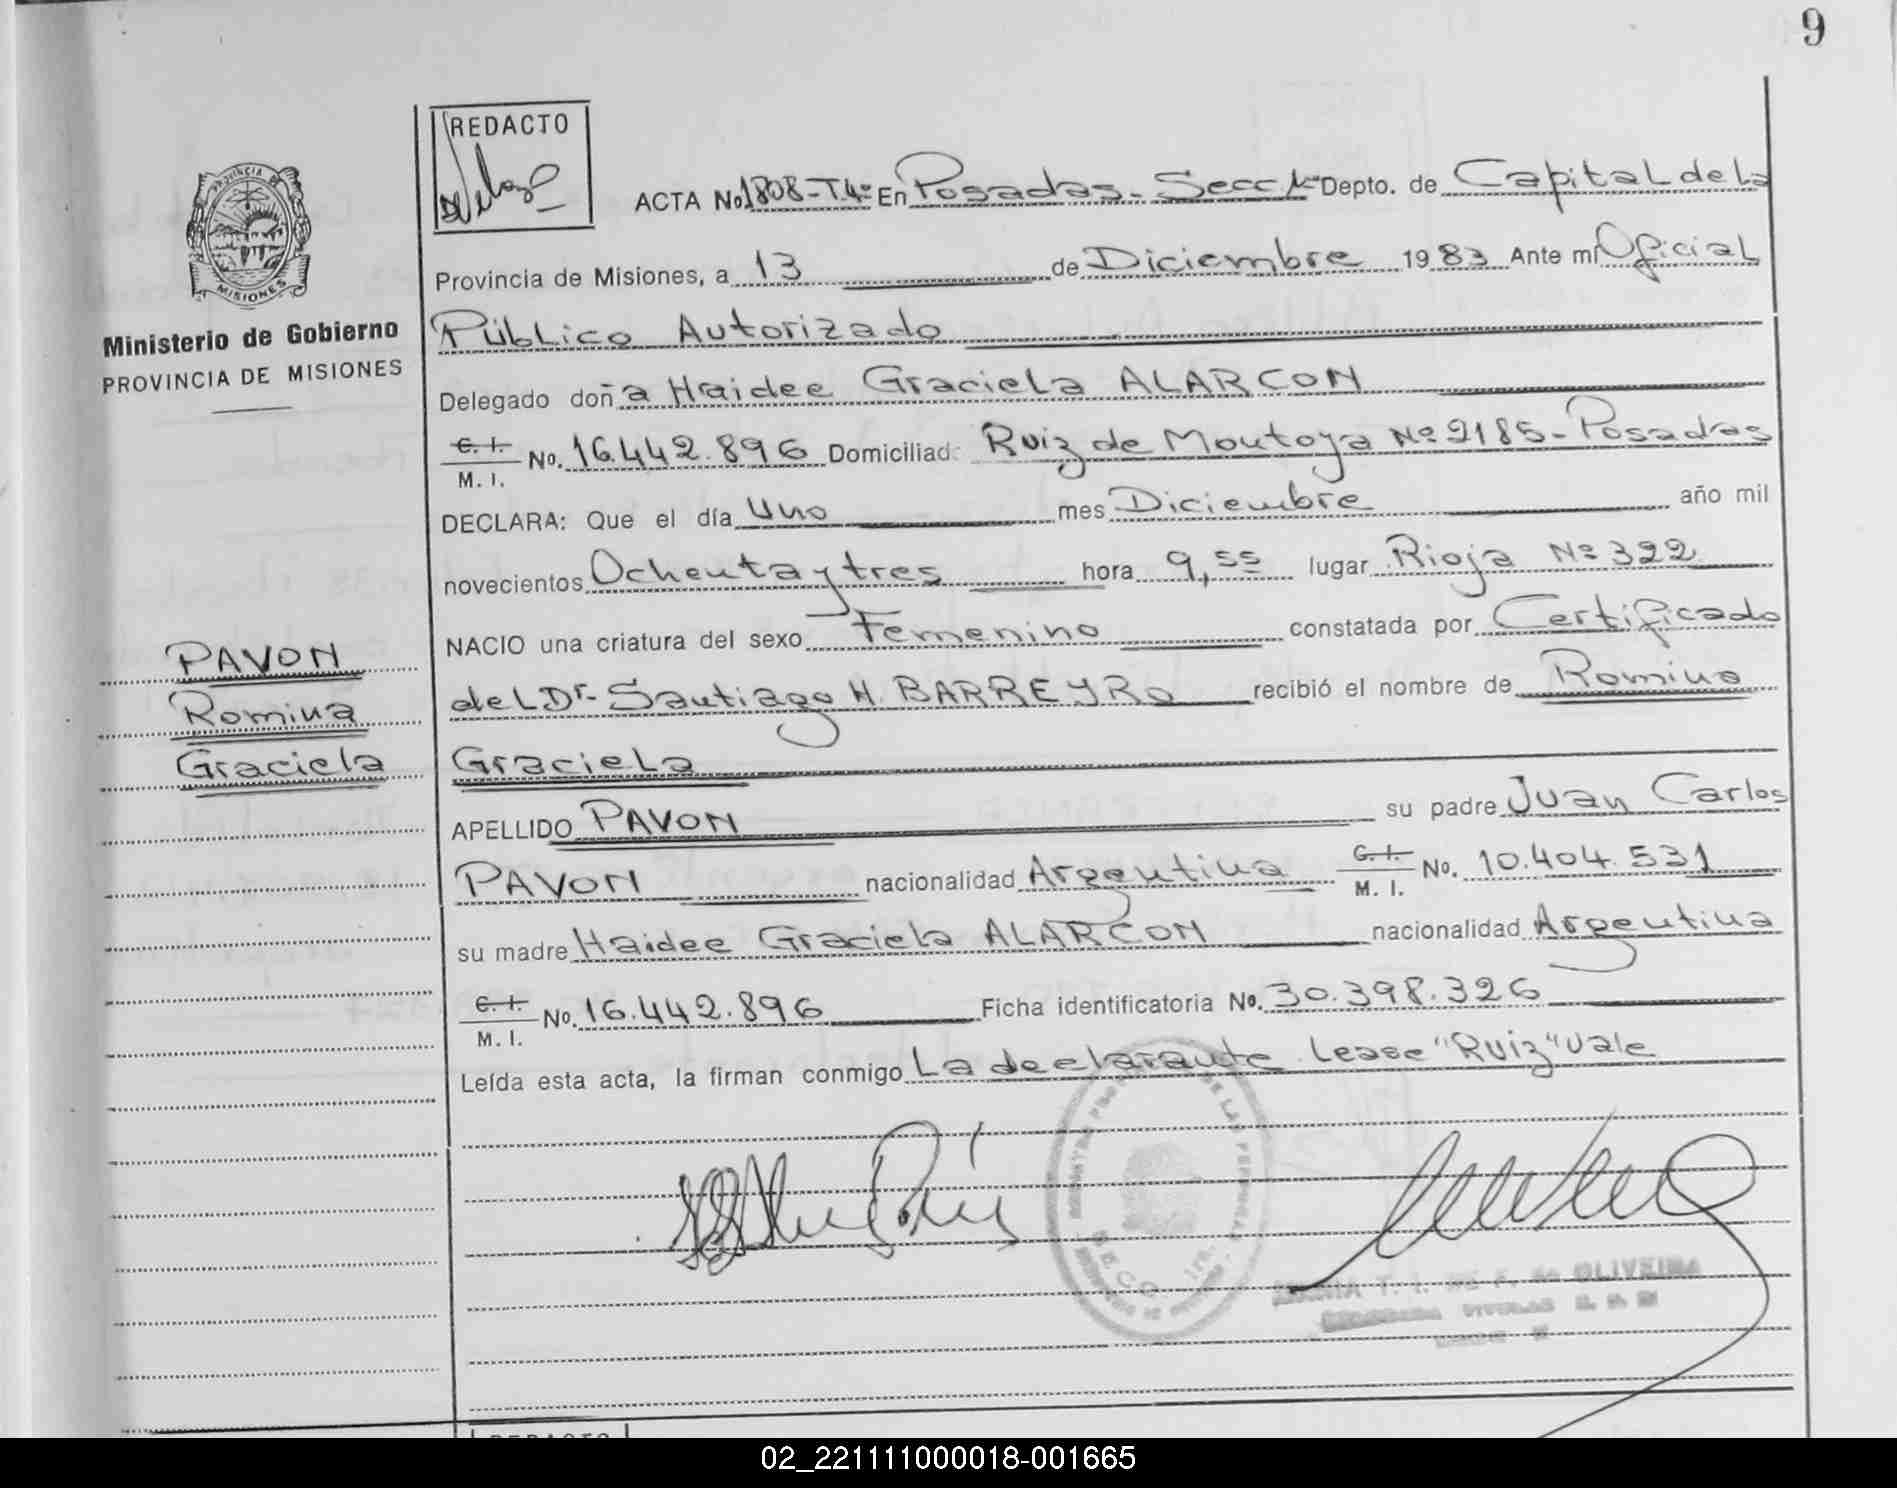 9
REDACTO
PROVINCIA DE
MISIONES
Ministerio de Gobierno
PROVINCIA DE MISIONES
ACTA No 1808-T.4º En Posadas - Secc 1ª Depto. de Capital de la
Provincia de Misiones, a 13 de Diciembre 1983 Ante mí Oficial
Público Autorizado
Delegado doña Haidee Graciela ALARCON
C. I.
M. I. No. 16.442.896 Domiciliad Ruiz de Montoya Nº 2185 - Posadas
DECLARA: Que el día Uno mes Diciembre año mil
novecientos Ochenta y tres hora 9,55 lugar Rioja Nº 322
NACIO una criatura del sexo Femenino constatada por Certificado
del Dr. Santiago H. BARREYRO recibió el nombre de Romina
Graciela
APELLIDO PAVON su padre Juan Carlos
PAVON nacionalidad Argentina C. I.
M. I. No. 10.404.531
su madre Haidee Graciela ALARCON nacionalidad Argentina
C. I.
M. I. No. 16.442.896 Ficha identificatoria No. 30.398.326
Leída esta acta, la firman conmigo La declarante. Lease "Ruiz" Vale
PAVON
Romina
Graciela
DE LAS PERSONAS
SECC. 1ra.
OLIVEIRA
REDACTO
02_221111000018-001665